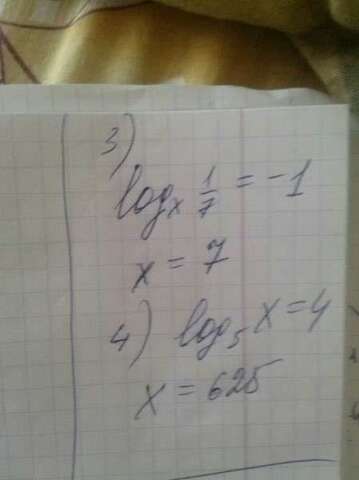 3)
logₓ 1/7 = -1
x = 7
4) log₅ x = 4
x = 625